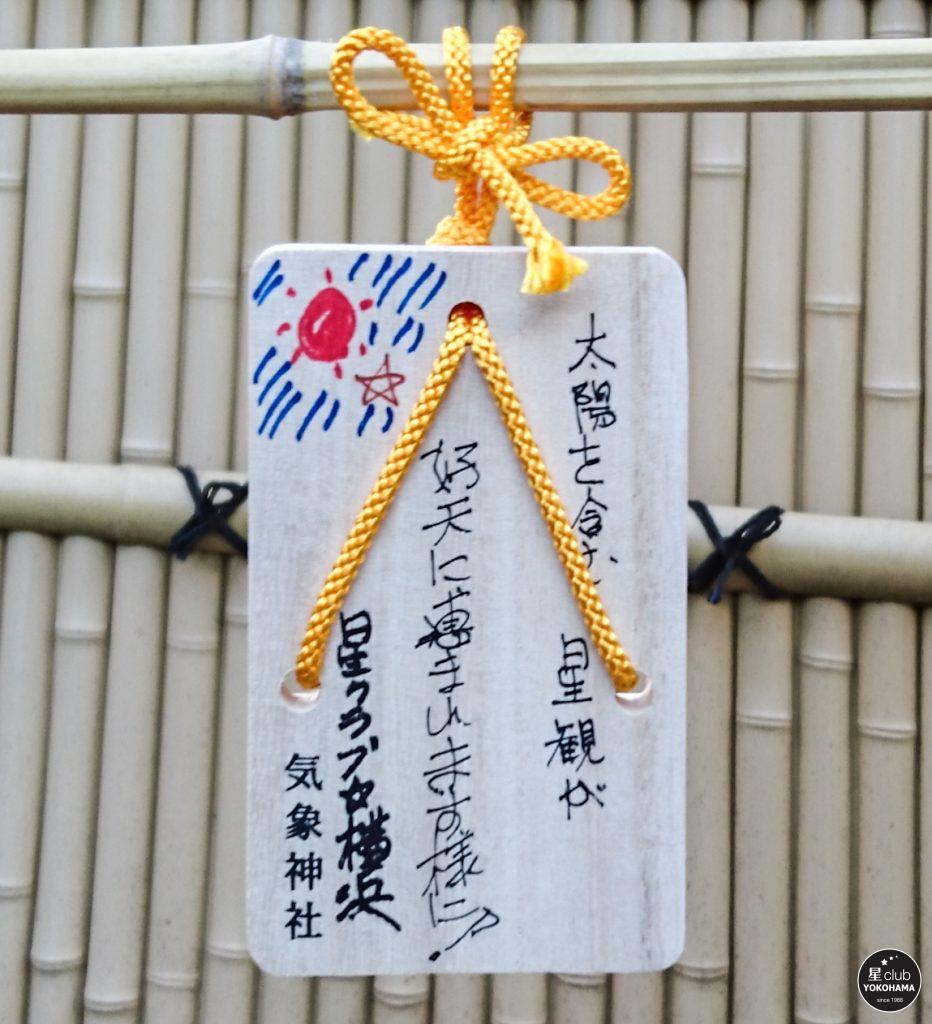 太陽を含む
星観が
好天に恵まれます様に!
星クラブ☆横浜
気象神社
星club
YOKOHAMA
since 1988